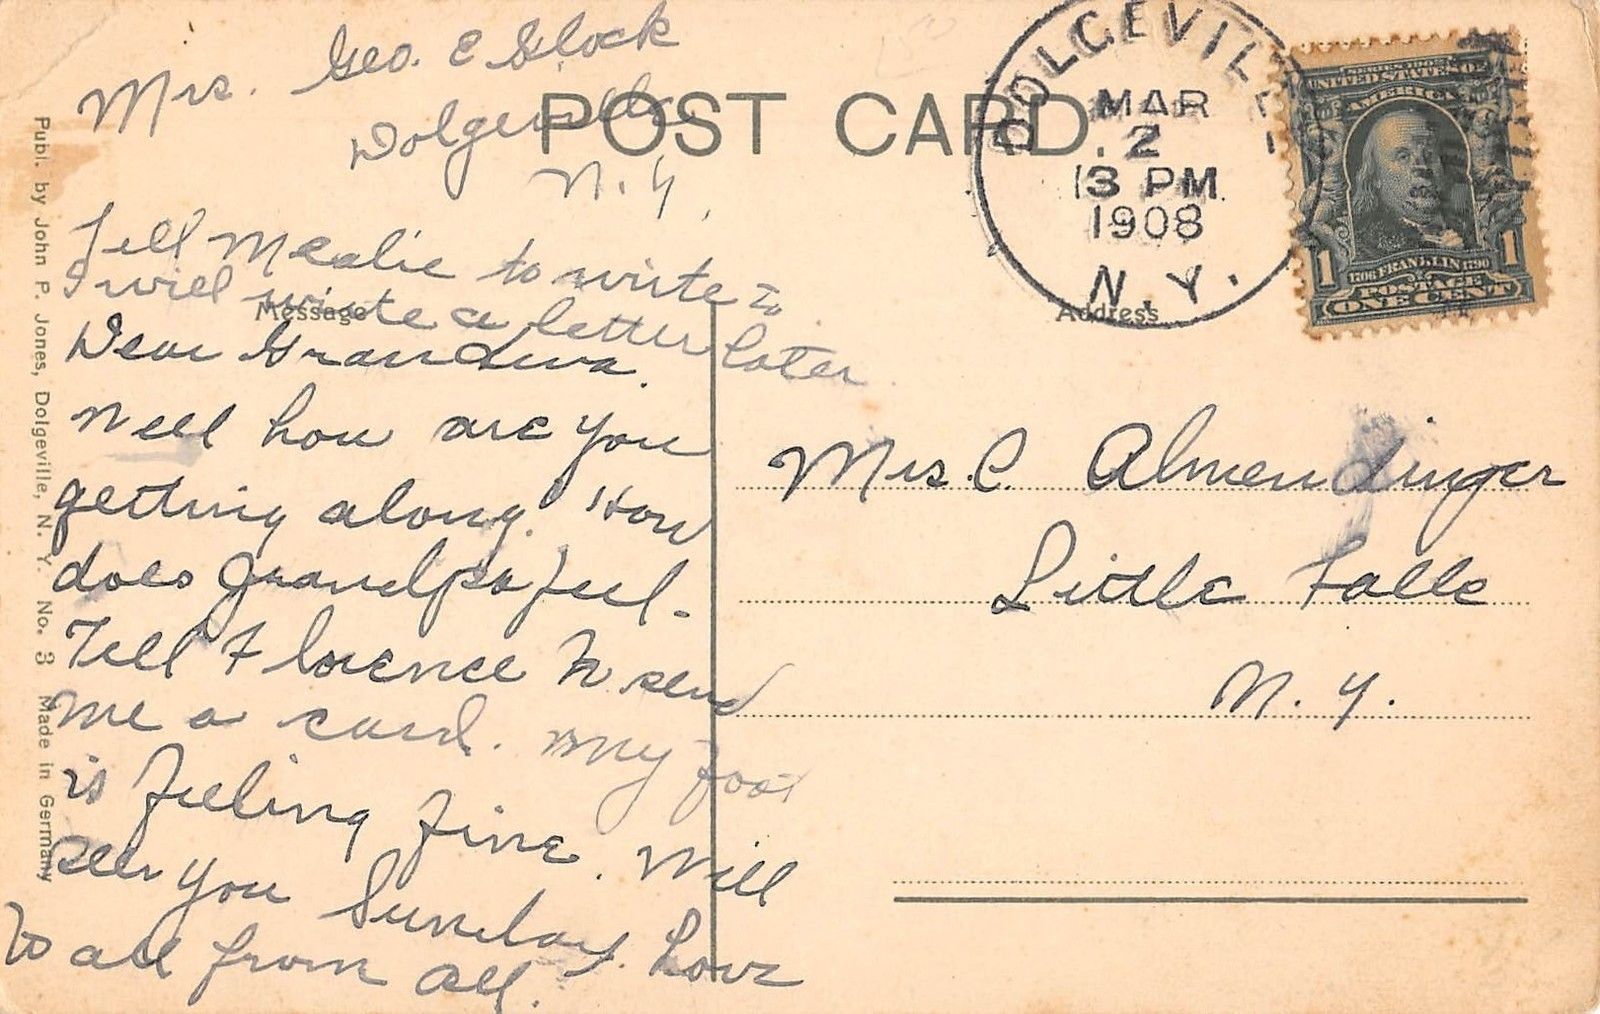 Mrs. Geo. E Slock
Dolgeville
N. Y.
POST CARD.
DOLGEVILLE
MAR
2
3 PM
1908
N. Y.
SERIES 1902
UNITED STATES OF
AMERICA
1706 FRANKLIN 1790
1 1
POSTAGE
ONE CENT
Tell to write
I will write a letter later
Message
Address
Dear Grandma.
Well how are you
getting along. How
does Grandpa feel.
Tell Florence to send
me a card. My foot
is feeling fine. Will
see you Sunday. Love
to all from all.
Mrs. C. Almendinger
Little Falls
N. Y.
Publ. by John P. Jones, Dolgeville, N. Y. No. 3 Made in Germany